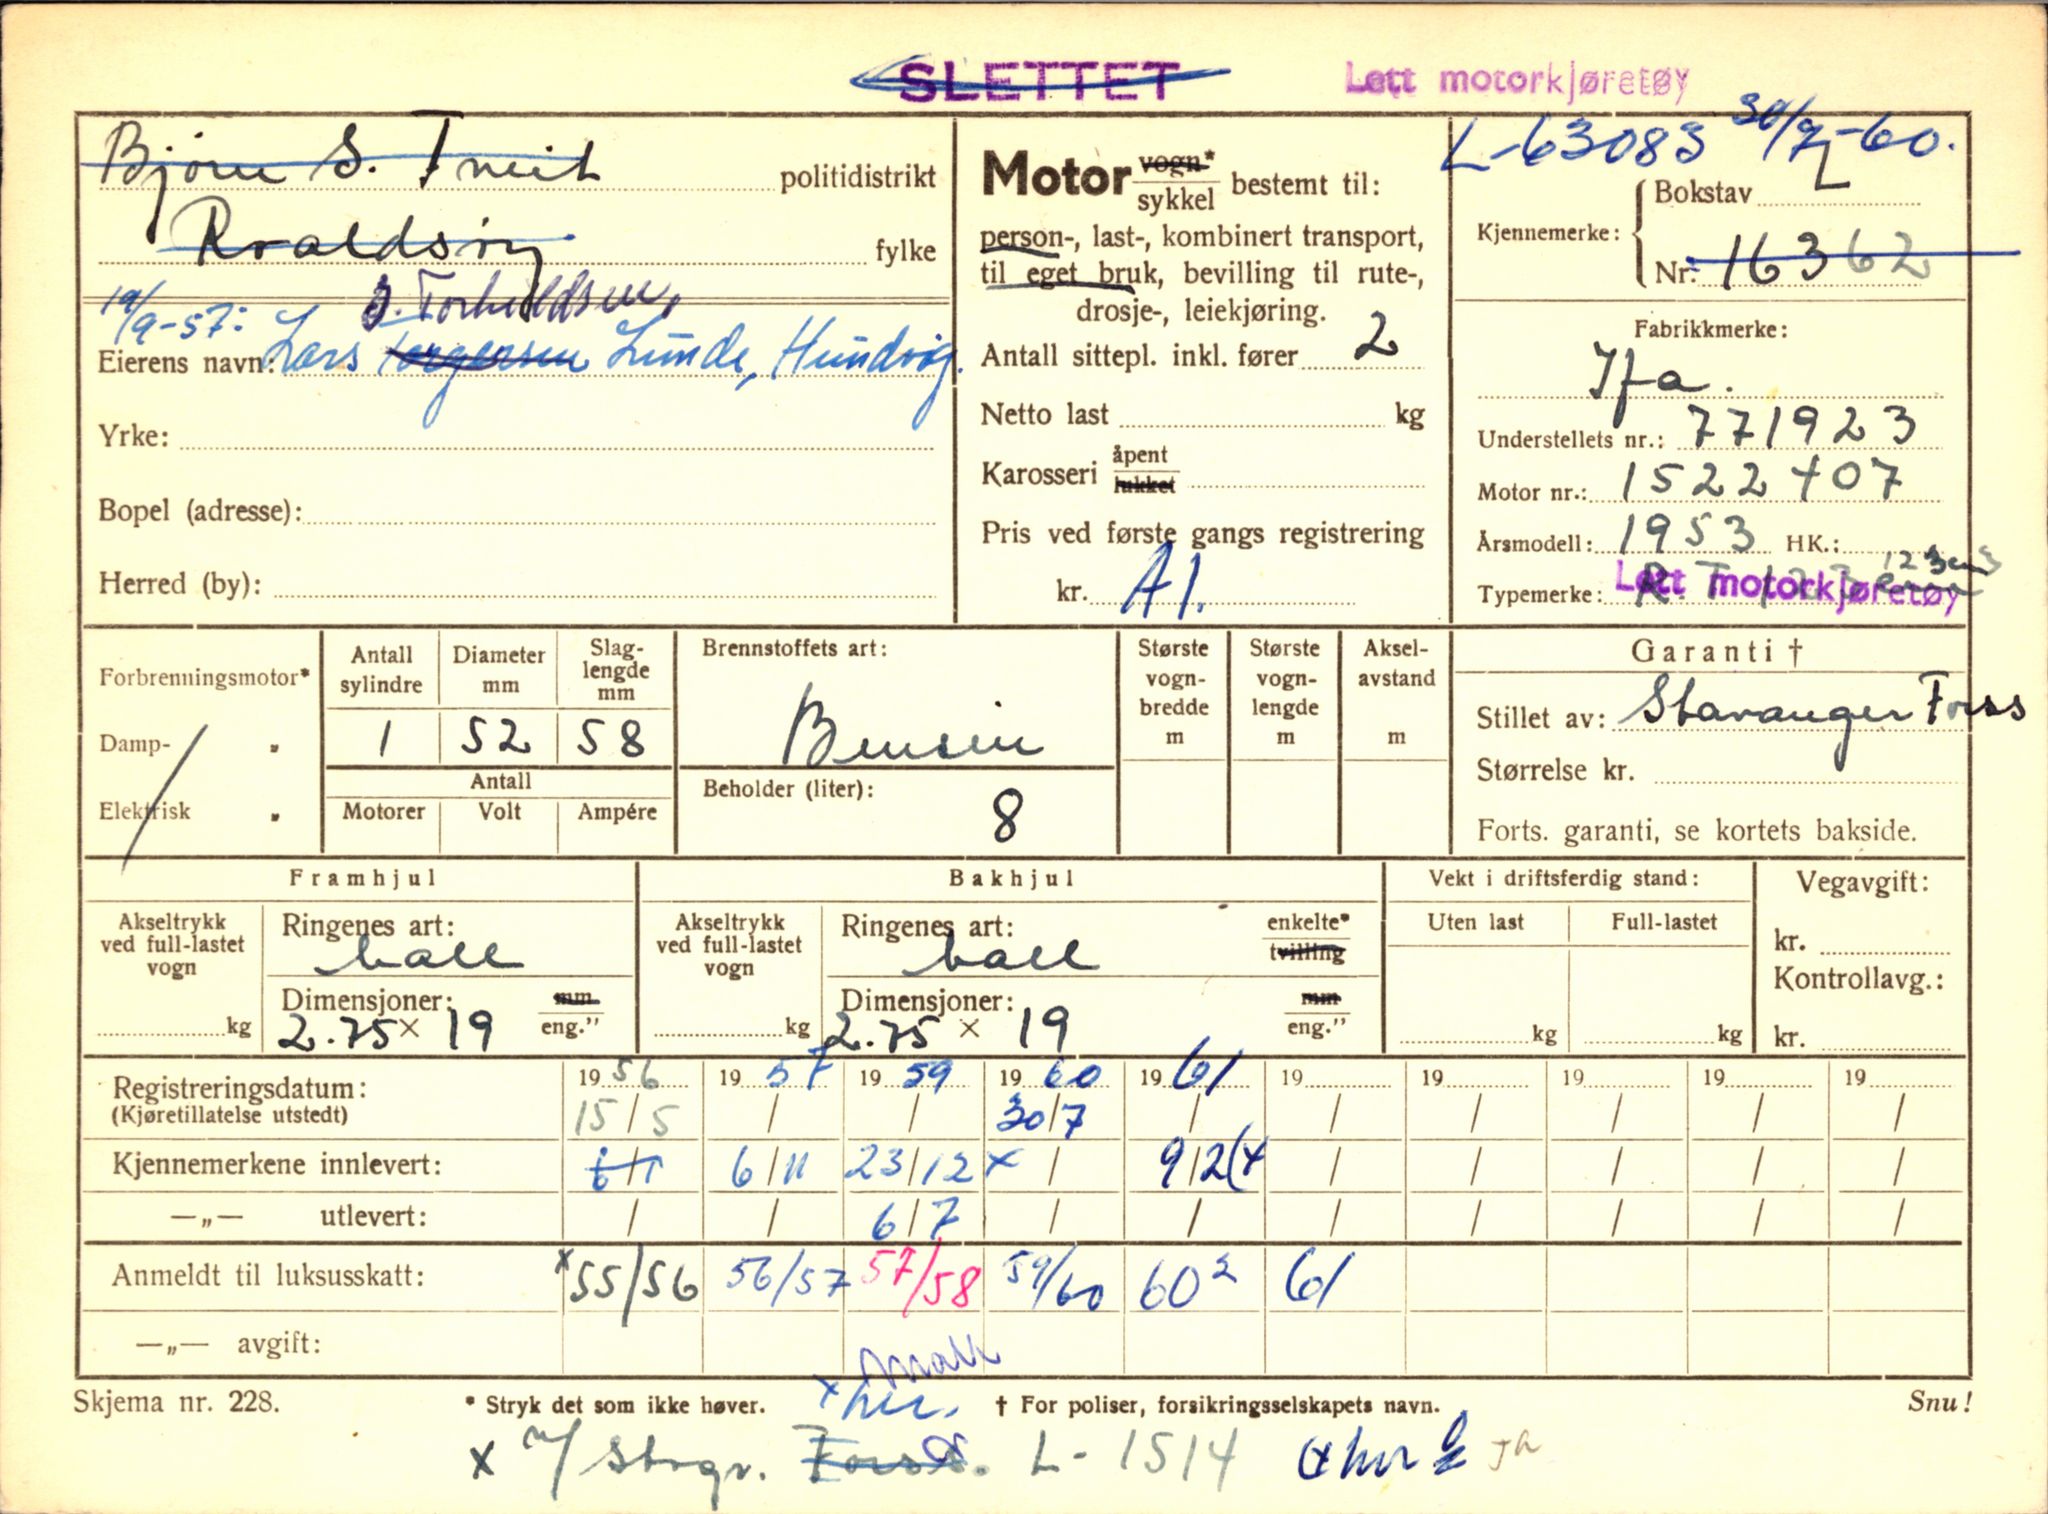 SLETTET
Lett motorkjøretøy
L-63083 30/7-60.
Bjørn S. Tveit politidistrikt
Roaldsøy fylke
19/9-57: S. Torkildsen,
Eierens navn: Lars Torgersen Lunde, Hundvåg.
Yrke:
Bopel (adresse):
Herred (by):
Motor vogn* sykkel bestemt til:
person-, last-, kombinert transport,
til eget bruk, bevilling til rute-,
drosje-, leiekjøring.
Antall sittepl. inkl. fører 2
Netto last kg
Karosseri åpent lukket
Pris ved første gangs registrering
kr. A1.
Kjennemerke: Bokstav L
Nr. 16362
Fabrikkmerke:
Ifa.
Understellets nr.: 771923
Motor nr.: 1522407
Årsmodell: 1953 HK.:
Typemerke: Lett motorkjøretøy
Forbrenningsmotor*
Damp- "
Elektrisk "
Antall sylindre Diameter mm Slaglengde mm
1 52 58
Antall
Motorer Volt Ampére
Brennstoffets art:
Bensin
Beholder (liter):
8
Største vognbredde m
Største vognlengde m
Akselavstand m
Garanti †
Stillet av: Stavanger Forss
Størrelse kr.
Forts. garanti, se kortets bakside.
Framhjul
Akseltrykk ved full-lastet vogn kg
Ringenes art:
ball
Dimensjoner: mm eng."
2.75 × 19
Bakhjul
Akseltrykk ved full-lastet vogn kg
Ringenes art: enkelte* tvilling
ball
Dimensjoner: mm eng."
2.75 × 19
Vekt i driftsferdig stand:
Uten last Full-lastet
kg kg
Vegavgift:
kr.
Kontrollavg.:
kr.
Registreringsdatum: 1956 1957 1959 1960 1961 19 19 19 19 19
(Kjøretillatelse utstedt) 15/5 / / 30/7 / / / / / /
Kjennemerkene innlevert: 6/11 23/12 x / 9/2 / / / / /
—„— utlevert: / / 6/7 / / / / / / /
Anmeldt til luksusskatt: x 55/56 56/57 57/58 59/60 60² 61
—„— avgift:
Skjema nr. 228.
* Stryk det som ikke høver.
† For poliser, forsikringsselskapets navn.
Snu!
x Stvgr. Forss. L-1514